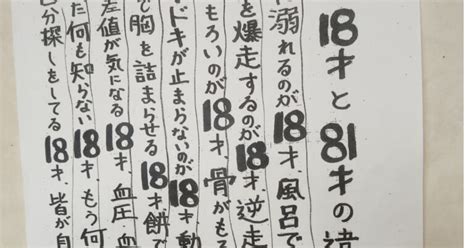 18才と81才の違
溺れるのが18才、風呂で
を爆走するのが18才、逆走
もろいのが18才、骨がもろ
ドキが止まらないのが18才動
で胸を詰まらせる18才餅で
差値が気になる18才、血圧・血
た何も知らない18才、もう何
分探しをしてる18才、皆が自